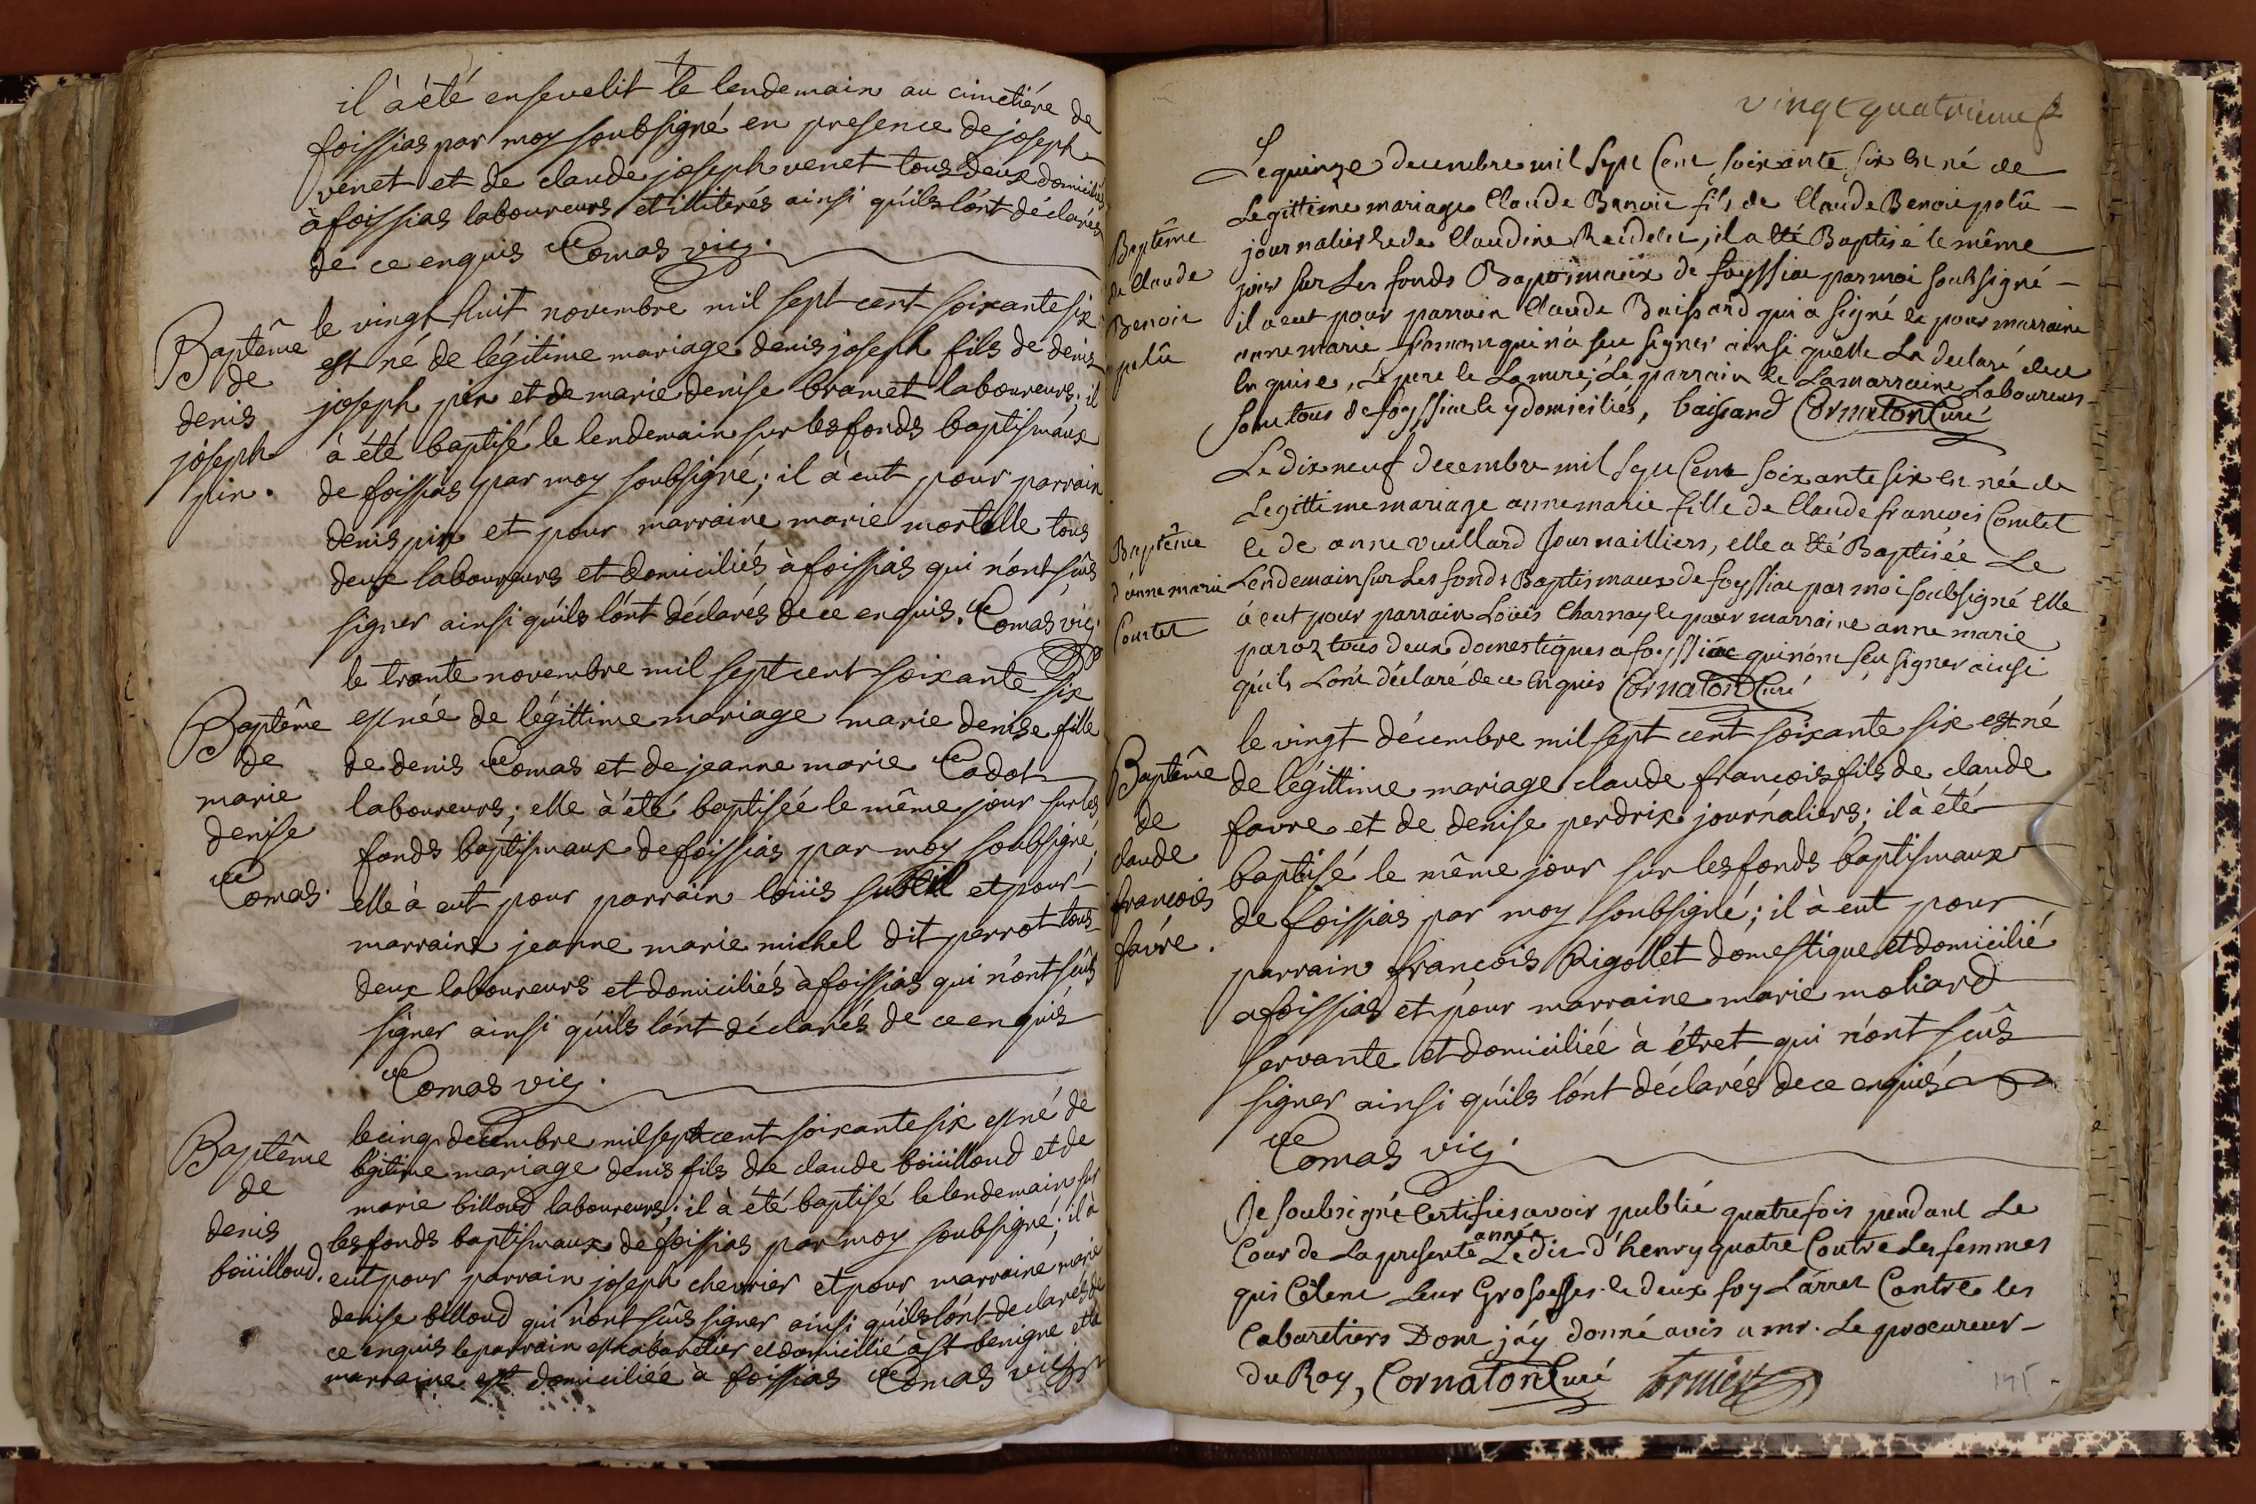 il à été ensevelit le lendemain au cimetiére de
foissias par moy soubsigné en presence de joseph
venet et de claude joseph venet tous deux domiciliés
à foissias laboureurs et illiterés ainsi qu'ils l'ónt déclarés
de ce enquis Comas vic.
Baptême
de
denis
joseph
pin.
le vingt huit novembre mil sept cent soixante six
est né de légitime mariage denis joseph fils de denis
joseph pin et de marie denise bramet laboureurs; il
à été baptisé le lendemain sur les fonds baptismaux
de foissias par moy soubsigné; il à eut pour parrain
denis pin et pour marraine marie mortelle tous
deux laboureurs et domiciliés à foissias qui n'ónt sûs
signer ainsi qu'ils l'ónt déclarés de ce enquis. Comas vic.
Baptême
de
marie
denise
Comas.
le trante novembre mil sept cent soixante six
est née de légittime mariage marie denise fille
de denis Comas et de jeanne marie Cadot
laboureurs; elle à été baptisée le même jour sur les
fonds baptismaux de foissias par moy soubsigné;
elle à eut pour parrain loüis subtil et pour
marraine jeanne marie michel dit perrot tous
deux laboureurs et domiciliés à foissias qui n'ont sûs
signer ainsi qu'ils l'ónt déclarés de ce enquis
Comas vic.
Baptême
de
denis
boüilloud.
le cinq decembre mil sept cent soixante six est né de
légitime mariage denis fils de claude boüilloud et de
marie billoud laboureurs; il à été baptisé le lendemain sur
les fonds baptismaux de foissias par moy soubsigné; il à
eut pour parrain joseph chevrier et pour marraine marie
denise billoud qui n'ont sûs signer ainsi qu'ils l'ónt declarés de
ce enquis le parrain est cabaretier et domicillié à st benigne et la
marraine est domiciliée à foissias Comas vic
vingt quatrieme
Baptême
de Claude
Benoit
polû
Le quinze decembre mil sept Cent soixante six est né de
Legittime mariage Claude Benoit fils de Claude Benoit polû
journalier & de Claudine, il a été Baptisé le même
jour sur Les fonds Baptismaux de foyssiat par moi soubsigné
il a eut pour parrain Claude Buissard qui a signé et pour marraine
anne marie qui n'a seu signer ainsi qu'elle La declaré de ce
Enquise, Le pere et La mere, Le parrain et La marraine Laboureurs
sont tous de foyssiat et y domiciliés, baissard Cornaton Curé
Baptême
d'anne marie
Comtet
Le dix neuf decembre mil sept Cent soixante six est née de
Legittime mariage anne marie fille de Claude francois Comtet
et de anne vuillard Journailliers, elle a été Baptisée Le
Lendemain sur Les fonds Baptismaux de foyssiat par moi soubsigné Elle
à eut pour parrain Loüis Charnay et pour marraine anne marie
paroz tous deux domestiques a foyssiat qui n'ónt seu signer ainsi
qu'ils L'ont déclaré de ce Enquis Cornaton Curé
Baptême
de
claude
françois
favre.
le vingt décembre mil sept cent soixante six est né
de légittime mariage claude françois fils de claude
favre et de denise perdrix journaliers; il à été
baptisé le même jour sur les fonds baptismaux
de foissias par moy soubsigné; il à eut pour
parrain françois Rigollet domestique et domicilié
a foissias et pour marraine marie moliard
servante et domiciliée à étret qui n'ónt sûs
signer ainsi qu'ils l'ónt déclarés de ce enquis
Comas vic.
Je soubsigné Certifies avoir publié quatre fois pendant Le
Cour de La presente année Ledit d'henry quatre Contre Les femmes
qui Célent Leur Grossesses et deux foy L'arret Contre les
Cabaretiers Dont j'ay donné avis a mr. Le procureur
Du Roy, Cornaton Curé